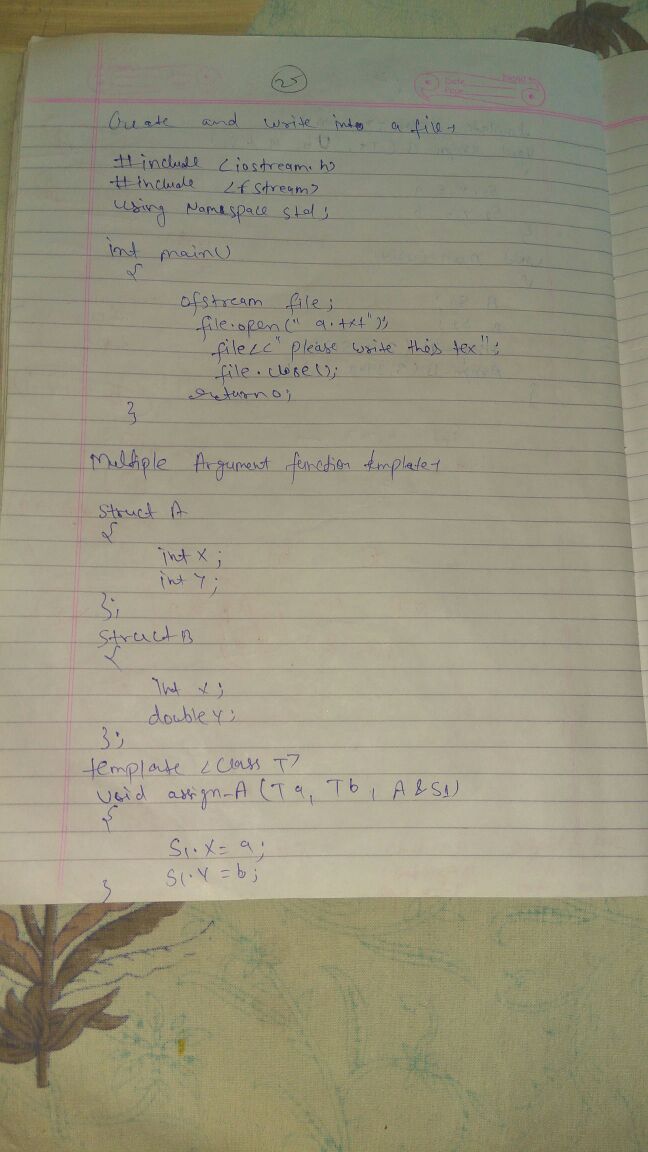 25
Date
Create and write into a file→
#include <iostream.h>
#include <fstream>
using Namespace std;
int main()
{
ofstream file;
file.open("a.txt");
file<<"please write this tex";
file.close();
return 0;
}
Multiple Argument function template→
Struct A
{
int X;
int Y;
};
Struct B
{
int x;
double Y;
};
template <class T>
void assign-A (T a, T b, A &S1)
{
S1.X = a;
S1.Y = b;
}